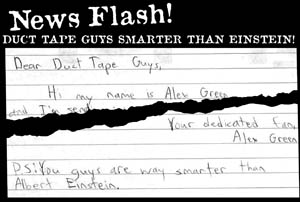 News Flash!
DUCT TAPE GUYS SMARTER THAN EINSTEIN!
Dear Duct Tape Guys,
Hi my name is Alex Green
and I'm send
Your dedicated fan,
Alex Green
P.S: You guys are way smarter than
Albert Einstein.